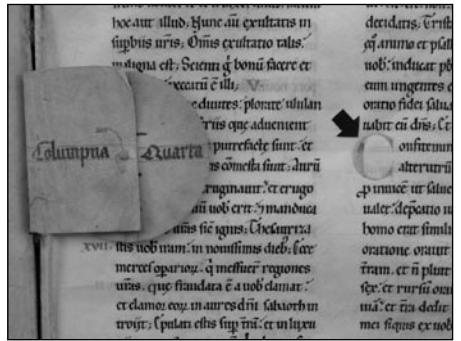 hoc aut illud; Nunc aū exultatis in
supbiis uris; Omis exultatio talis.
maligna est; Scienti g bonū facere et
peccatū ē illi;
diuites. plorate ululan
que aduenient
putrefacte sunt. et
comesta sunt; Aurū
et erugo
uob erit. 7 manduca
uras sic ignis; Thesauriza
xvii. stis uob iram. in nouissimis dieb; Ecce
merces operarior. q messuer regiones
uras. que fraudata ē a uob clamat.
et clamor eor in aures dni sabaoth in
troiit; Epulati estis sup trā. et in luxu
Columpna Quarta
decidatis; Trist
animo et psall
uob. inducat pb
eum ungentes
oratio fidei salua
uabit eū dns; Et
Confitemin
alterutrū
p inuicē ut salue
ualet. depcatio
homo erat simili
oratione orauit
tram. et n pluit
sex. et rursū ora
et tra dedit
mei siquis ex uob